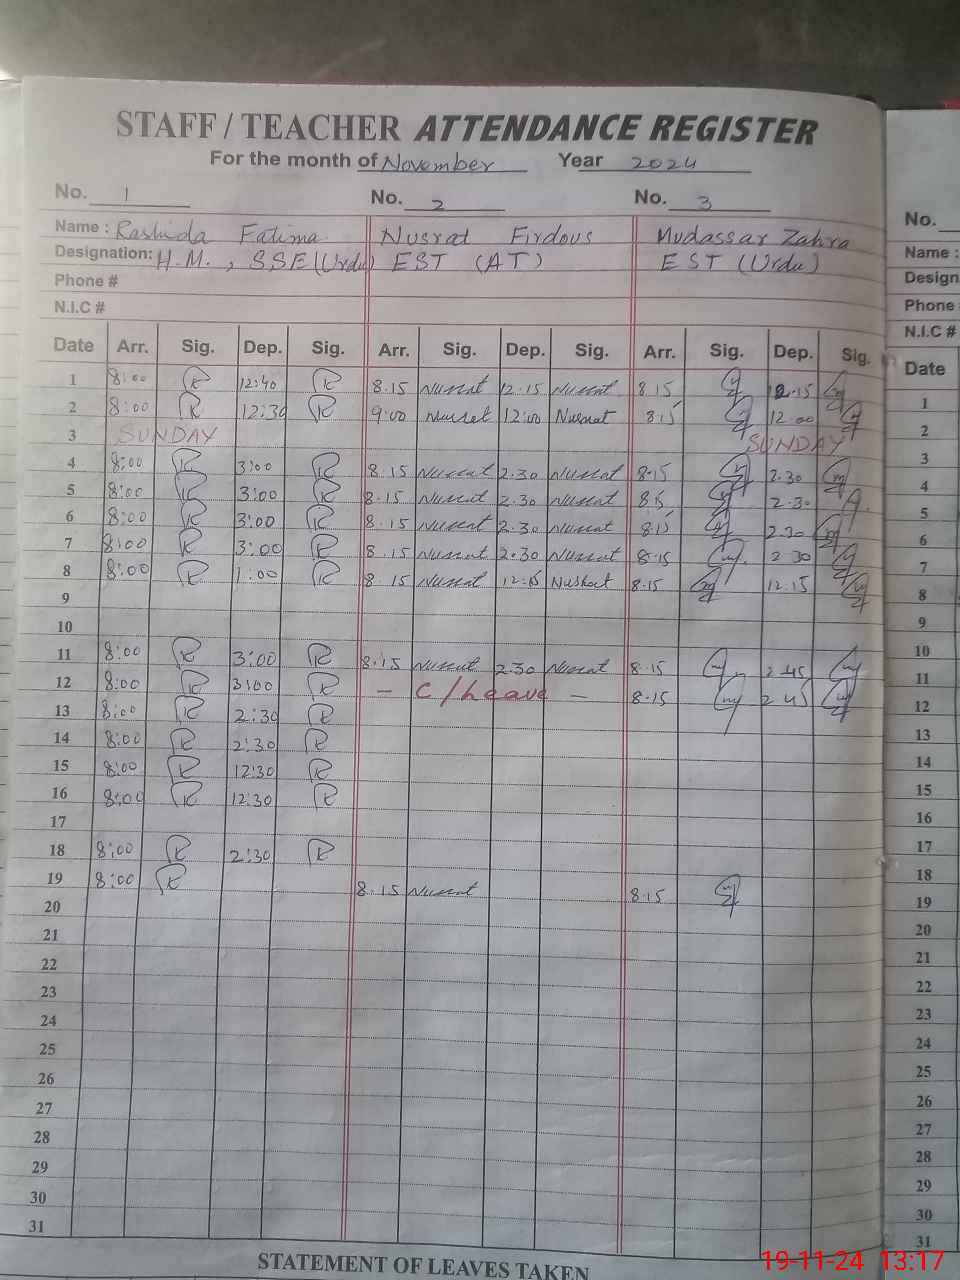 STAFF / TEACHER ATTENDANCE REGISTER
For the month of November Year 2024
No. 1 No. 2 No. 3 No.
Name : Rashida Fatima Nusrat Firdous Mudassar Zahra Name :
Designation: H.M. , SSE (Urdu) EST (AT) EST (Urdu) Design
Phone # Phone
N.I.C # N.I.C #
Date Arr. Sig. Dep. Sig. Arr. Sig. Dep. Sig. Arr. Sig. Dep. Sig. Date
1 8:00 R 12:40 R 8.15 Nusrat 12.15 Nusrat 8.15 12.15 1
2 8:00 R 12:30 R 9:00 Nusrat 12:00 Nusrat 8.15 12.00 2
3 SUNDAY SUNDAY 3
4 8:00 R 3:00 R 8.15 Nusrat 2.30 Nusrat 8.15 2.30 4
5 8:00 R 3:00 R 8.15 Nusrat 2.30 Nusrat 8.15 2.30 5
6 8:00 R 3:00 R 8.15 Nusrat 2.30 Nusrat 8.15 2.30 6
7 8:00 R 3:00 R 8.15 Nusrat 2.30 Nusrat 8.15 2 30 7
8 8:00 R 1:00 R 8.15 Nusrat 12.15 Nusrat 8.15 12.15 8
9 9
10 10
11 8:00 R 3:00 R 8.15 Nusrat 2.30 Nusrat 8.15 2.45 11
12 8:00 R 3:00 R – C/Leave – 8.15 2 45 12
13 8:00 R 2:30 R 13
14 8:00 R 2:30 R 14
15 8:00 R 12:30 R 15
16 8:00 R 12:30 R 16
17 17
18 8:00 R 2:30 R 18
19 8:00 R 8.15 Nusrat 8.15 19
20 20
21 21
22 22
23 23
24 24
25 25
26 26
27 27
28 28
29 29
30 30
31 31
STATEMENT OF LEAVES TAKEN
19-11-24 13:17